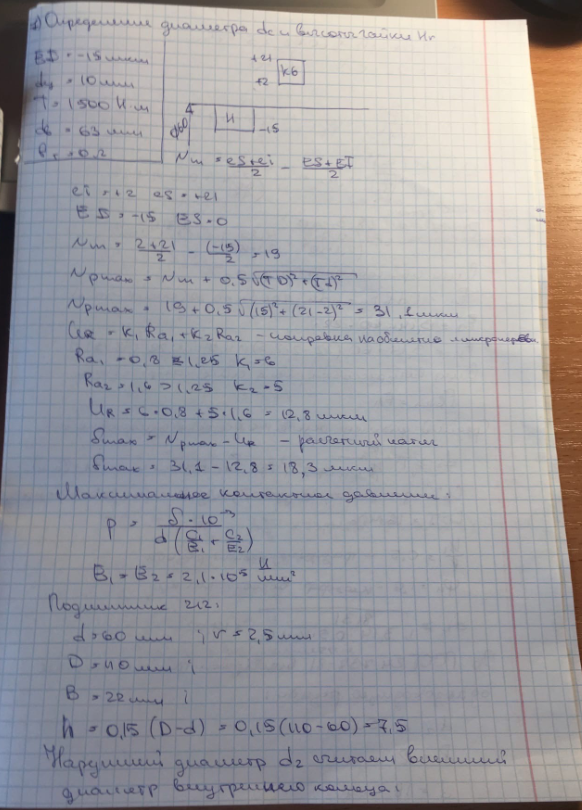 Определение диаметра dc и высоты гайки Hг
ED = -15 мкм
= 10 мм
T = 1500 Н·м
= 63 мм
= 0,2
+21
+2
k6
H
-15
Nm = es+ei/2 - ES+EI/2
ei = +2 es = +21
EI = -15 ES = 0
Nm = 2+21/2 - (-15)/2 = 19
Npmax = Nm + 0,5√(TD)²+(Td)²
Npmax = 19 + 0,5√(15)²+(21-2)² = 31,1 мкм
UR = k1Ra1 + k2Ra2 - поправка на обмятие
Ra1 = 0,8 ≤ 1,25 k1 = 6
Ra2 = 1,6 > 1,25 k2 = 5
UR = 6·0,8 + 5·1,6 = 12,8 мкм
δmax = Npmax - UR - расчетный натяг
δmax = 31,1 - 12,8 = 18,3 мкм
Максимальное контактное давление:
p = δ·10⁻³ / d(C1/E1 + C2/E2)
E1 = E2 = 2,1·10⁵ Н/мм²
Подшипник 212:
d = 60 мм ; r = 2,5 мм
D = 110 мм ;
B = 22 мм ;
h = 0,15 (D-d) = 0,15(110-60) = 7,5
Наружный диаметр d2 считаем внешний
диаметр внутреннего кольца: